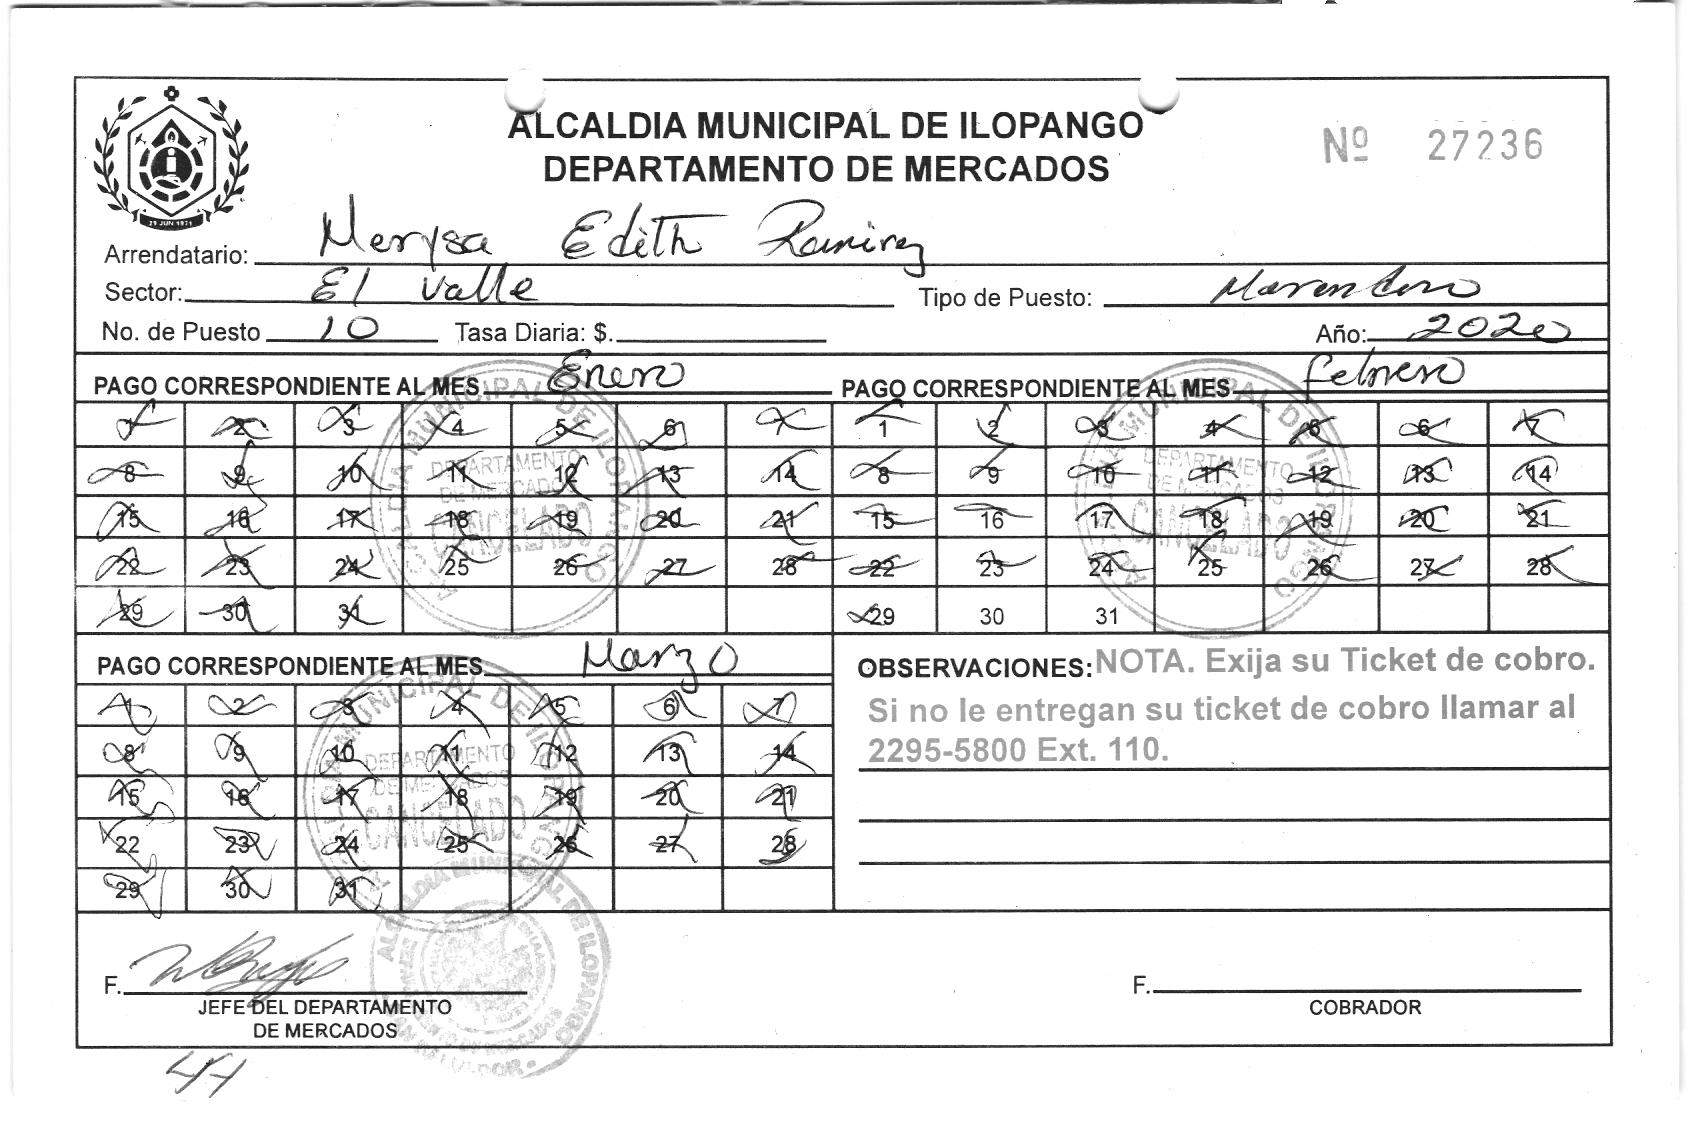 ALCALDIA MUNICIPAL DE ILOPANGO
DEPARTAMENTO DE MERCADOS
Nº 27236
29 JUN 1971
Arrendatario: Nerysa Edith Ramirez
Sector: El Valle Tipo de Puesto:
No. de Puesto 10 Tasa Diaria: $. Año: 2020
PAGO CORRESPONDIENTE AL MES Enero
1 2 3 4 5 6 7
8 9 10 11 12 13 14
15 16 17 18 19 20 21
22 23 24 25 26 27 28
29 30 31
ALCALDIA MUNICIPAL DE ILOPANGO
DEPARTAMENTO
DE MERCADOS
CANCELADO
PAGO CORRESPONDIENTE AL MES febrero
1 2 3 4 5 6 7
8 9 10 11 12 13 14
15 16 17 18 19 20 21
22 23 24 25 26 27 28
29 30 31
ALCALDIA MUNICIPAL DE ILOPANGO
DEPARTAMENTO
DE MERCADOS
CANCELADO
PAGO CORRESPONDIENTE AL MES Marzo
1 2 3 4 5 6 7
8 9 10 11 12 13 14
15 16 17 18 19 20 21
22 23 24 25 26 27 28
29 30 31
ALCALDIA MUNICIPAL DE ILOPANGO
DEPARTAMENTO
DE MERCADOS
CANCELADO
OBSERVACIONES: NOTA. Exija su Ticket de cobro.
Si no le entregan su ticket de cobro llamar al
2295-5800 Ext. 110.
ALCALDIA MUNICIPAL DE ILOPANGO
F.
JEFE DEL DEPARTAMENTO
DE MERCADOS
F.
COBRADOR